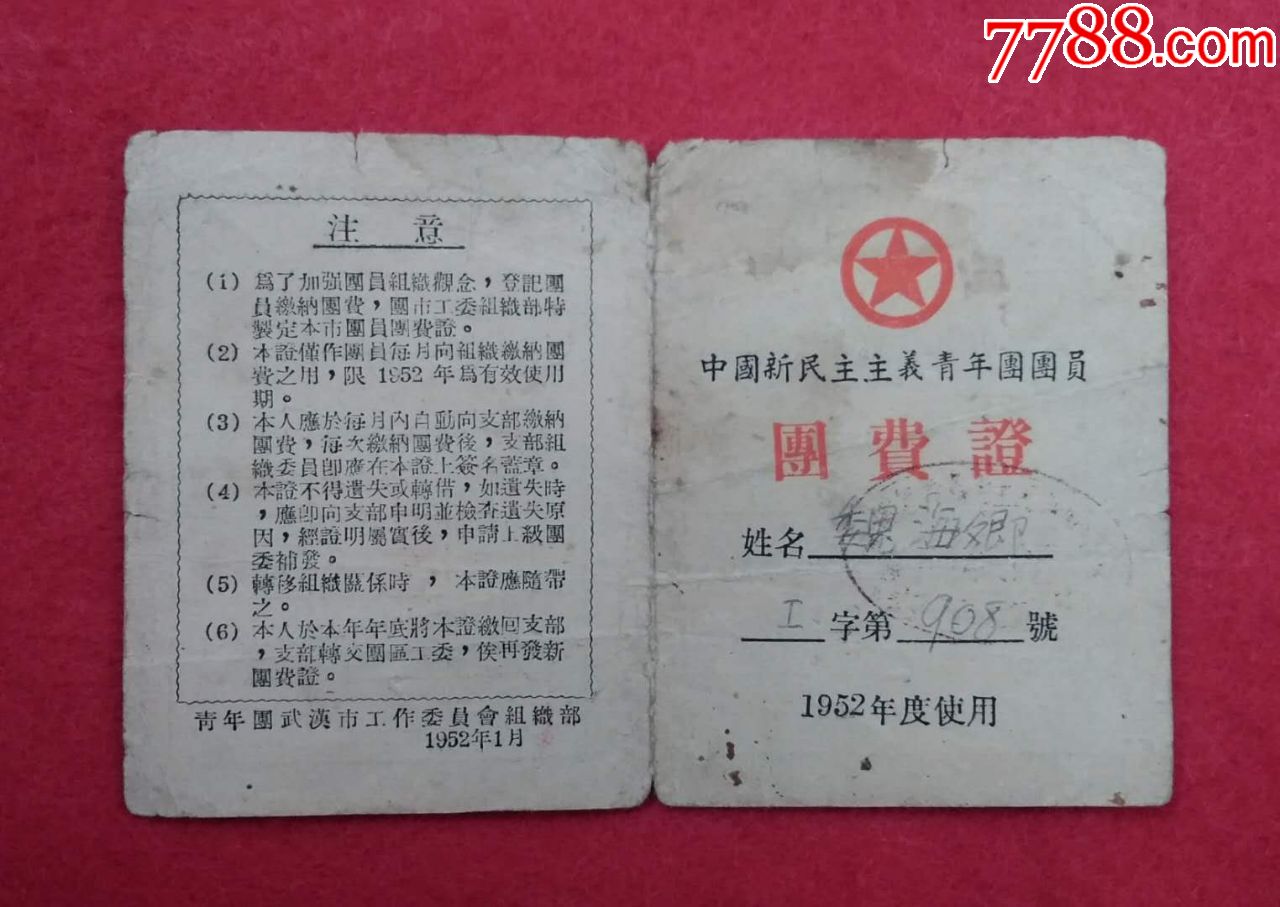 7788.com
注意
(1) 爲了加强團員組織觀念，登記團
員繳納團費，團市工委組織部特
製定本市團員團費證。
(2) 本證僅作團員每月向組織繳納團
費之用，限1952年爲有效使用
期。
(3) 本人應於每月內自動向支部繳納
團費，每次繳納團費後，支部組
織委員卽應在本證上簽名蓋章。
(4) 本證不得遺失或轉借，如遺失時
，應卽向支部申明並檢查遺失原
因，經證明屬實後，申請上級團
委補發。
(5) 轉移組織關係時，本證應隨帶
之。
(6) 本人於本年年底將本證繳回支部
，支部轉交團區工委，俟再發新
團費證。
靑年團武漢市工作委員會組織部
1952年1月
中國新民主主義青年團團員
團費證
姓名 魏海卿
I 字第 908 號
1952年度使用